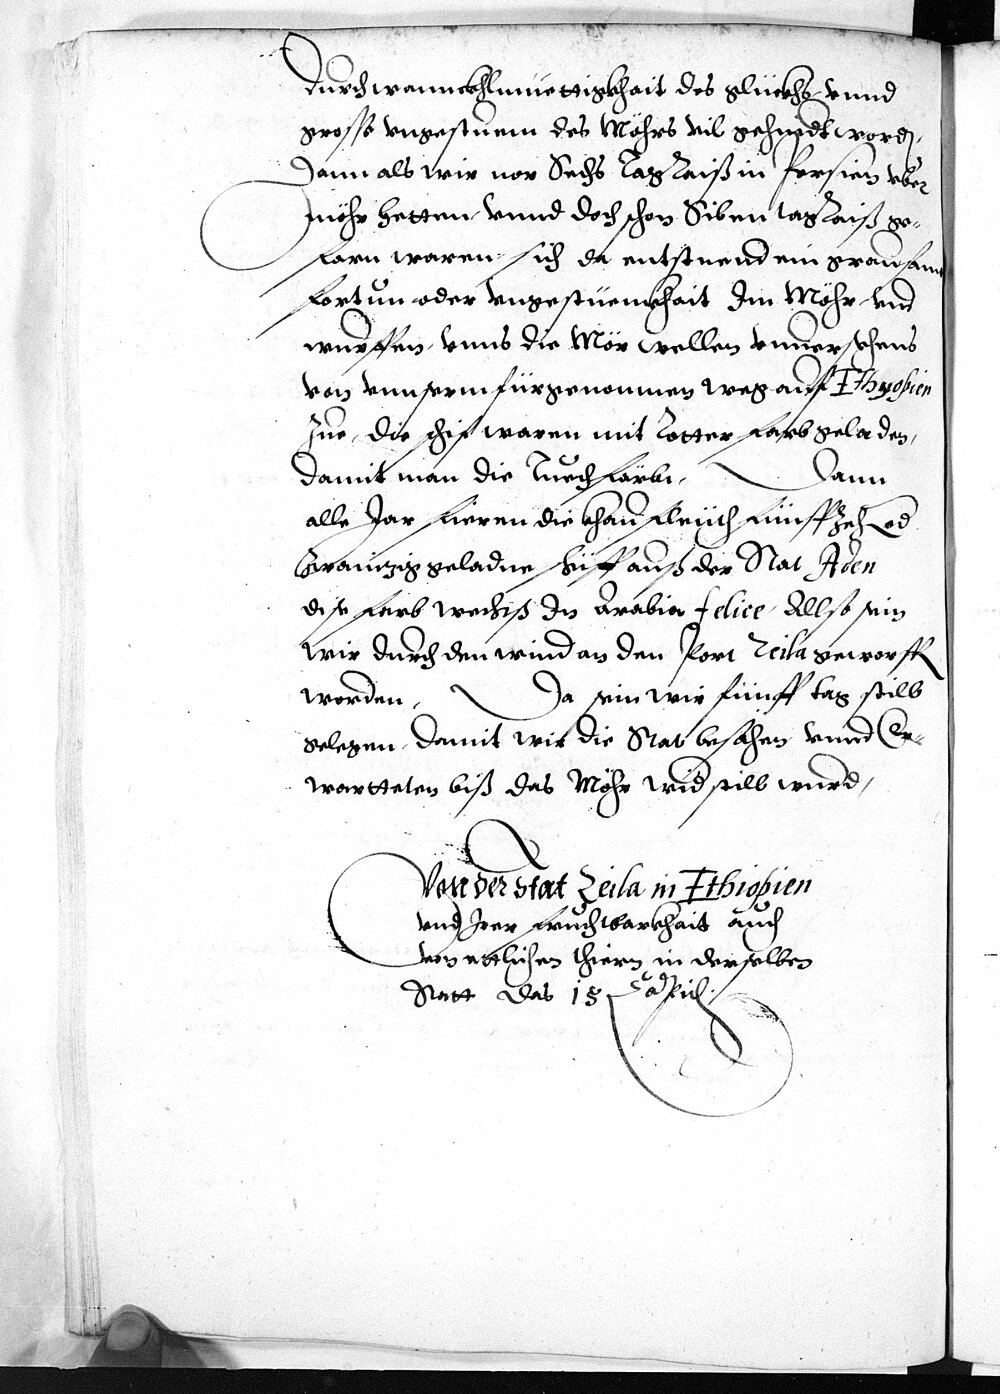 durch wannckhlmüettigkhait des glückhs vnnd
grosse vngestuem des Möhrs vil gehindt word,
Dann als wir nor Sechs Tag Raiß in Persien vber
möhr hetten vnnd doch schon Siben tag Raiß ge-
farn waren, sich da entstuend ein grausam
fortun oder vngestüemkhait Im Möhr vnd
wurffen vnns die Mör wellen vnuersehens
von vnnserm fürgenommen weg auf Ethyopien
Zue, die schif waren mit Rotter farb geladen,
damit man die Tuech färbt, Dann
alle Jar fieren die khaufleüth fünffzeh od
Zwainzig geladne schiff auß der Stat Aden
dise farb wechst In Arabia felice, Allso sein
wir durch den wind an den Port Zeila geworff
worden, Da sein wir fünff tag still
gelegen damit wir die Stat besahen vnnd Er-
wartteten biß das Möhr wid still wurd,
Von der Stat Zeila in Ethiopien
vnd Irer fruchtbarkhait auch
von ettlichen thiern in derselben
Statt Das 15 Capitl